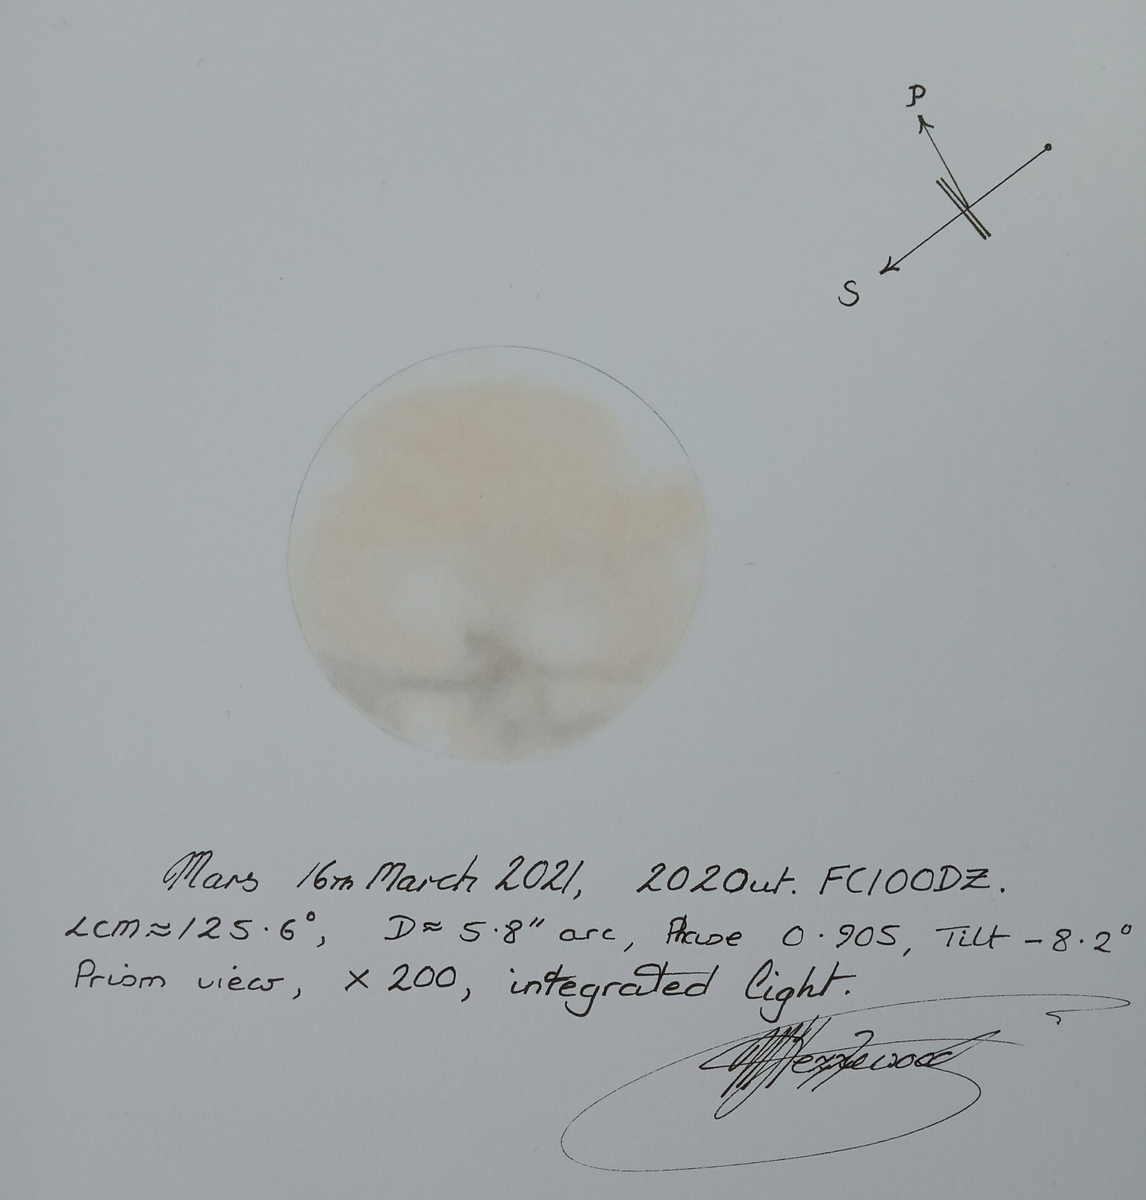 P
S
Mars 16th March 2021, 2020ut. FC100DZ.
LCM≈125.6°, D≈ 5.8" arc, Phase 0.905, Tilt -8.2°
Prism view, x 200, integrated light.